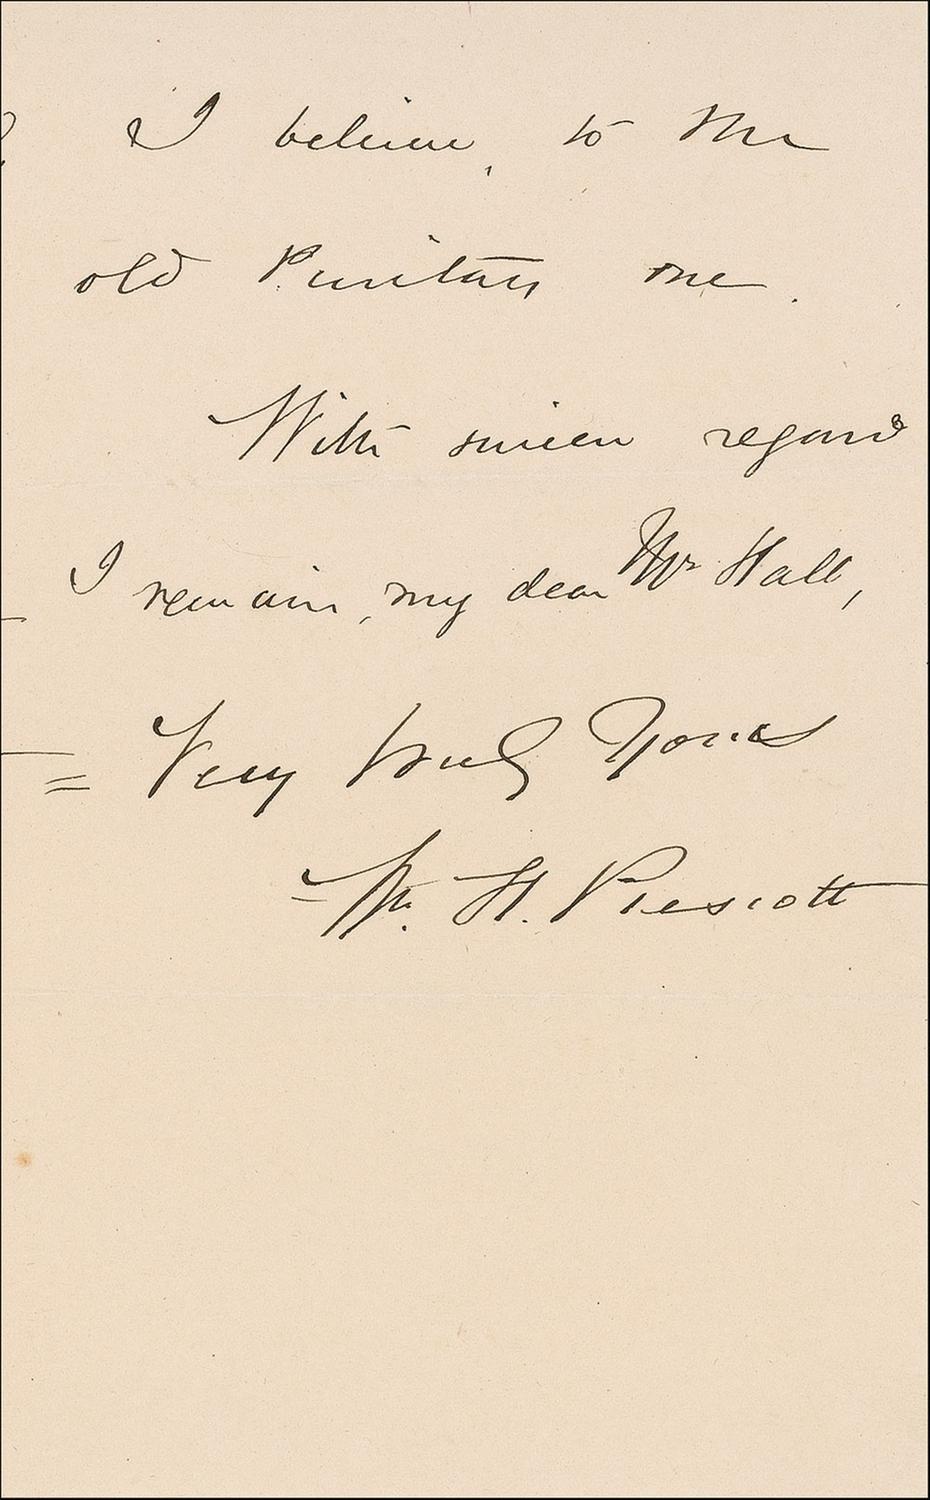 I believe, to the
old Puritan one.
With sincere regard
I remain, my dear Mr Hall,
Very truly Yours
Wm. H. Prescott